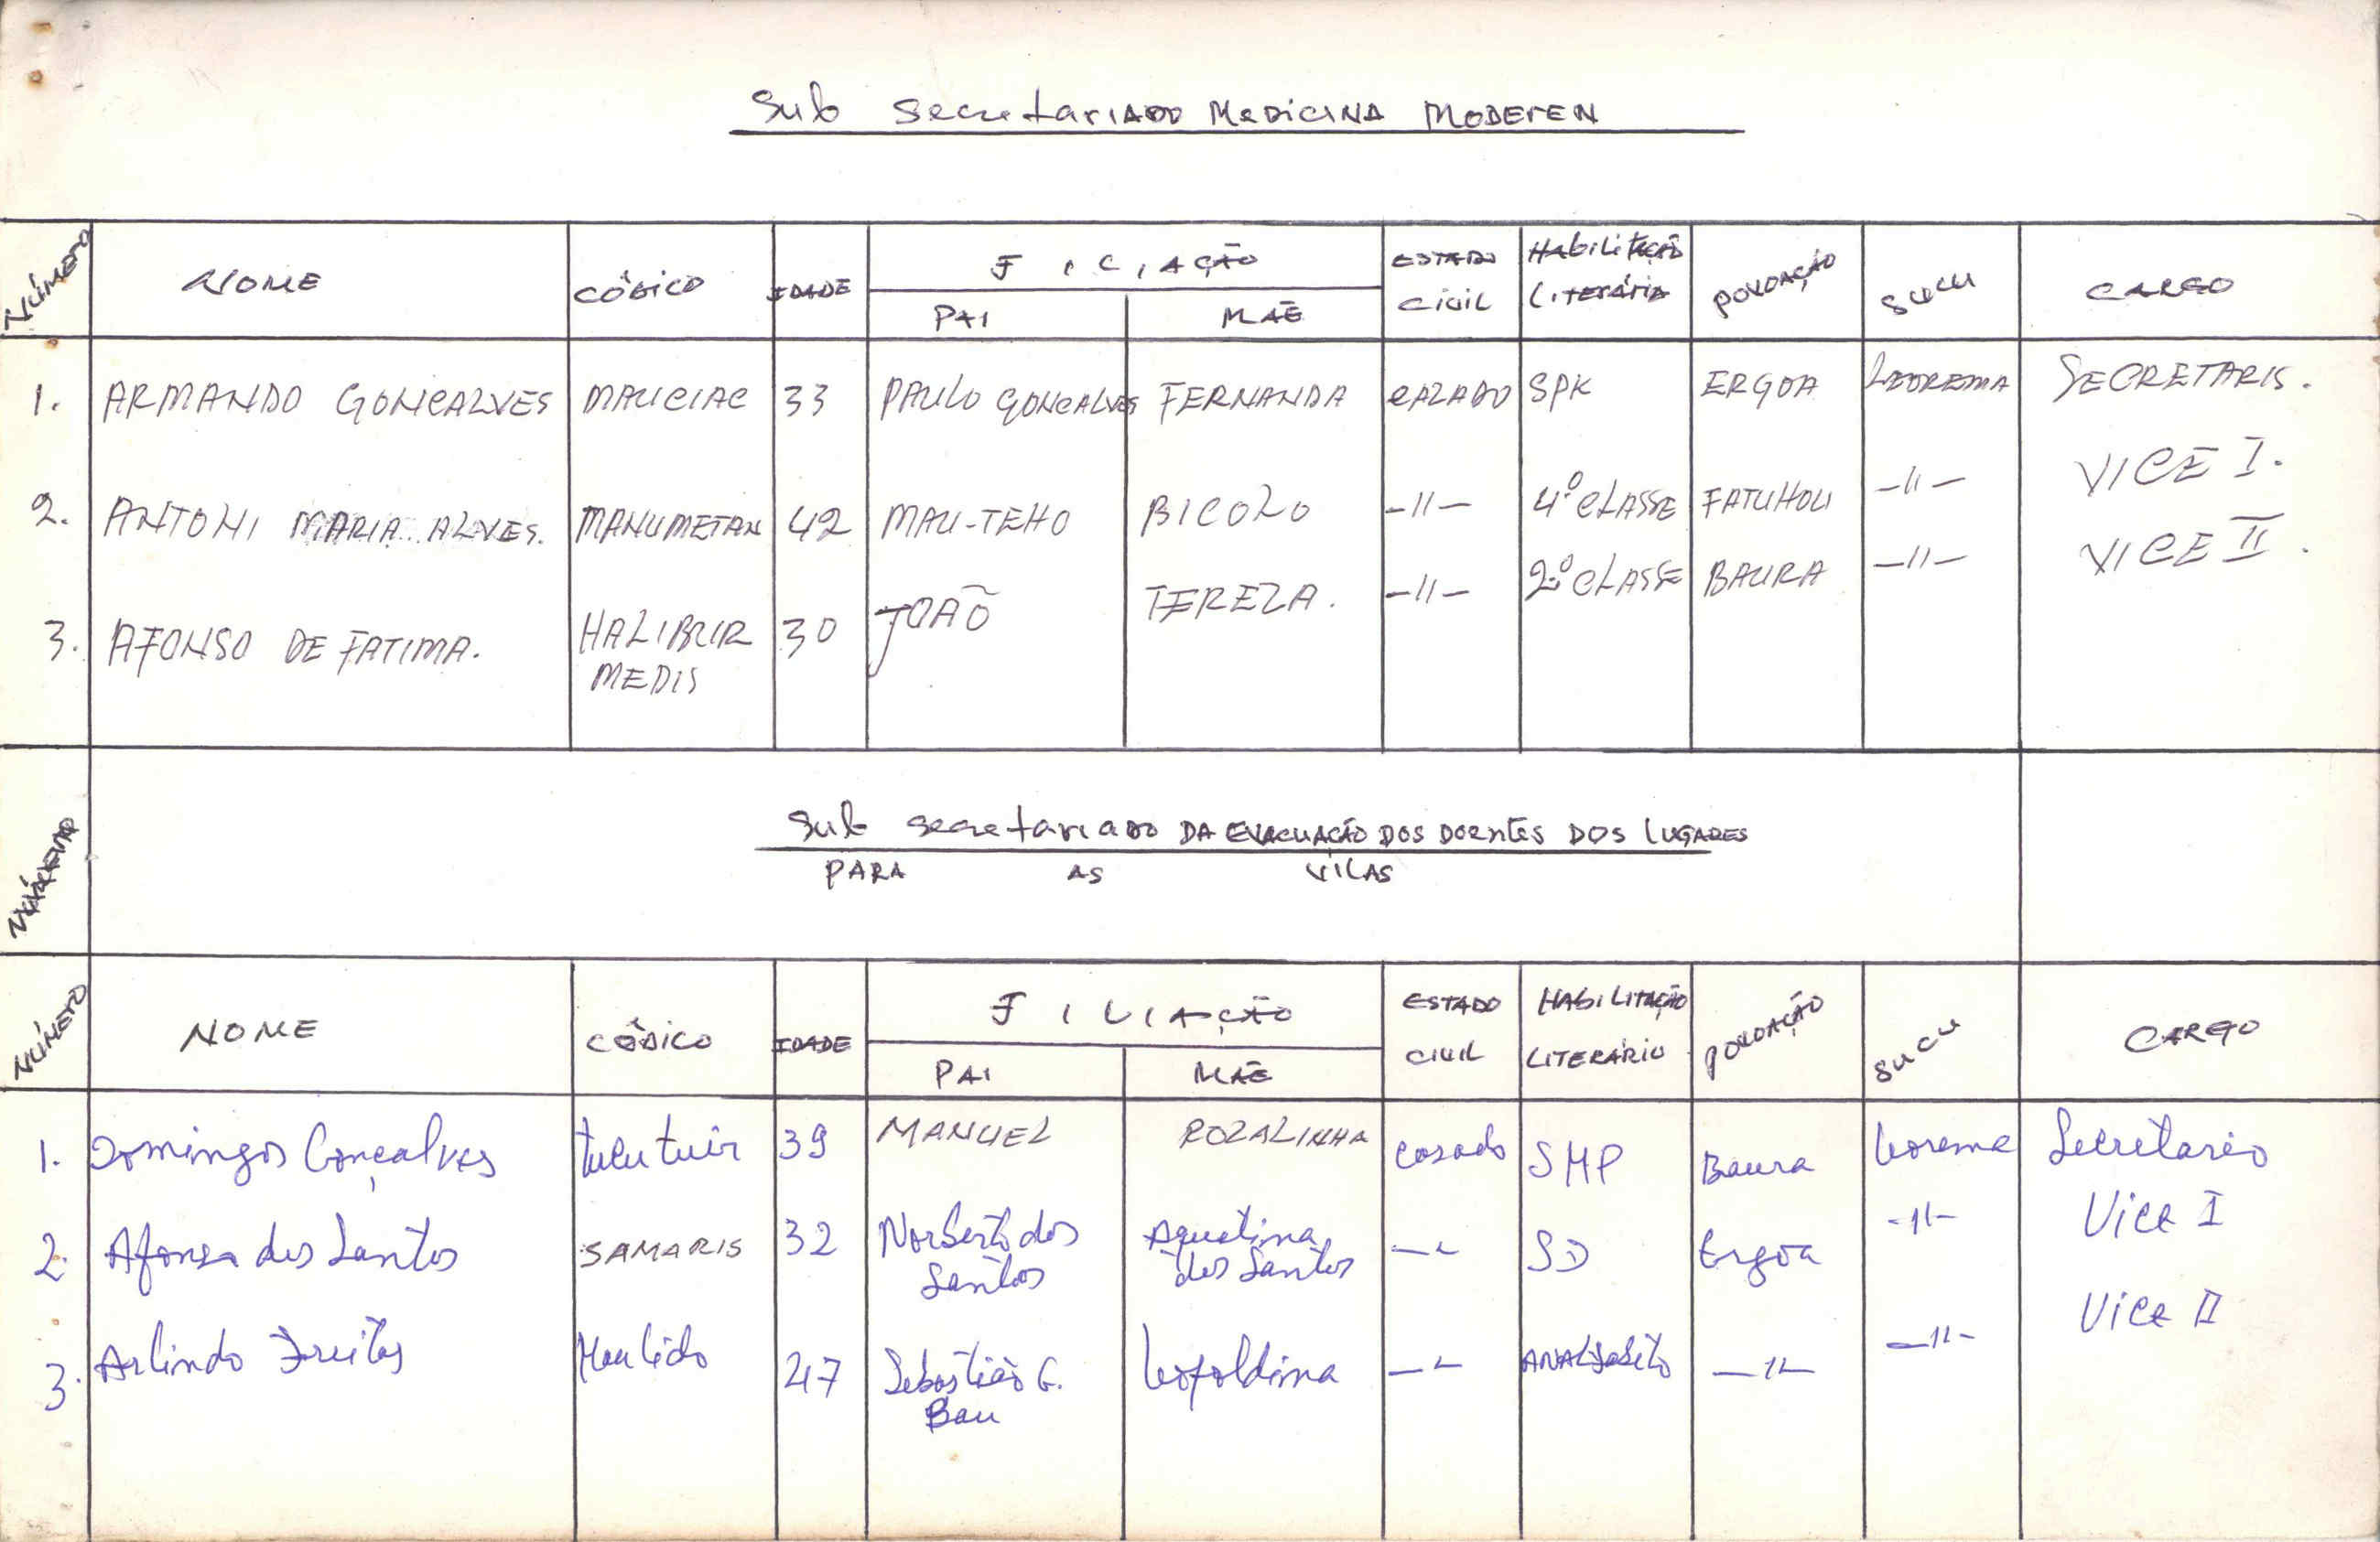 Sub SecretariADO MEDICINA MODEREN
NÚMERO NOME CÓDICO IDADE FILIAÇÃO ESTADO CIVIL HABILITAÇÃO LITERÁRIA POVOAÇÃO SUCU CARGO
PAI MÃE
1. ARMANDO GONCALVES MAUCIAC 33 PAULO GONCALVES FERNANDA CAZADO SPK ERGOA LEOREMA SECRETARIS.
2. ANTONI MARIA ALVES. MANUMETAN 42 MAU-TEHO BICOLO -11- 4º CLASSE FATUHOLI -11- VICE I.
3. AFONSO DE FATIMA. HALIBUR MEDIS 30 JOAÕ TEREZA. -11- 2º CLASSE BAURA -11- VICE II.
Sub secretariado DA EVACUAÇÃO DOS DOENTES DOS LUGARES
PARA AS VILAS
NÚMERO NOME CÓDICO IDADE FILIAÇÃO ESTADO CIVIL HABILITAÇÃO LITERÁRIO POVOAÇÃO SUCU CARGO
PAI MÃE
1. Domingos Gonçalves tuku tuir 39 MANUEL ROZALINHA Casado SMP Baura Leorema Secretario
2. Afonso dos Santos SAMARIS 32 Norberto dos Santos Aquelina dos Santos SD Ergoa -11- Vice I
3. Arlindo Freitas Haulido 47 Sebastião G. Bau Leopoldina ANALFabeto -11- -11- Vice II